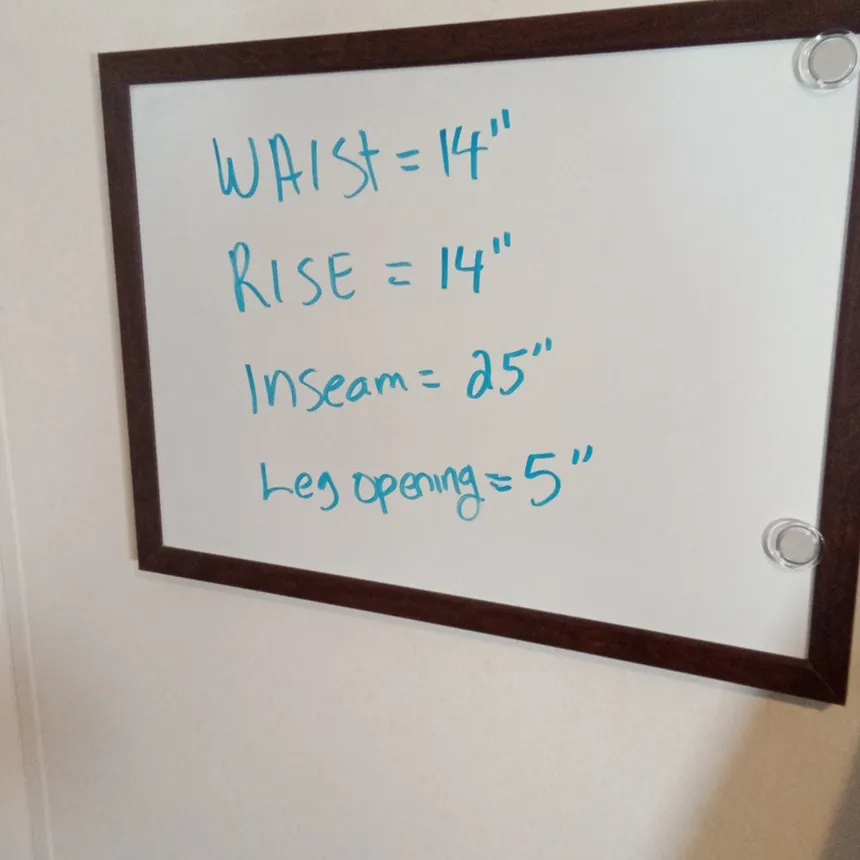 WAISt = 14"
RISE = 14"
Inseam = 25"
Leg opening = 5"